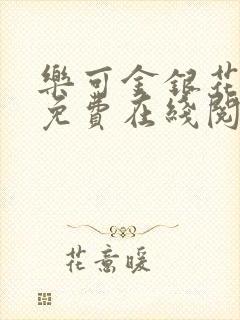 樂可金銀花
免費在綫閱
花意暖